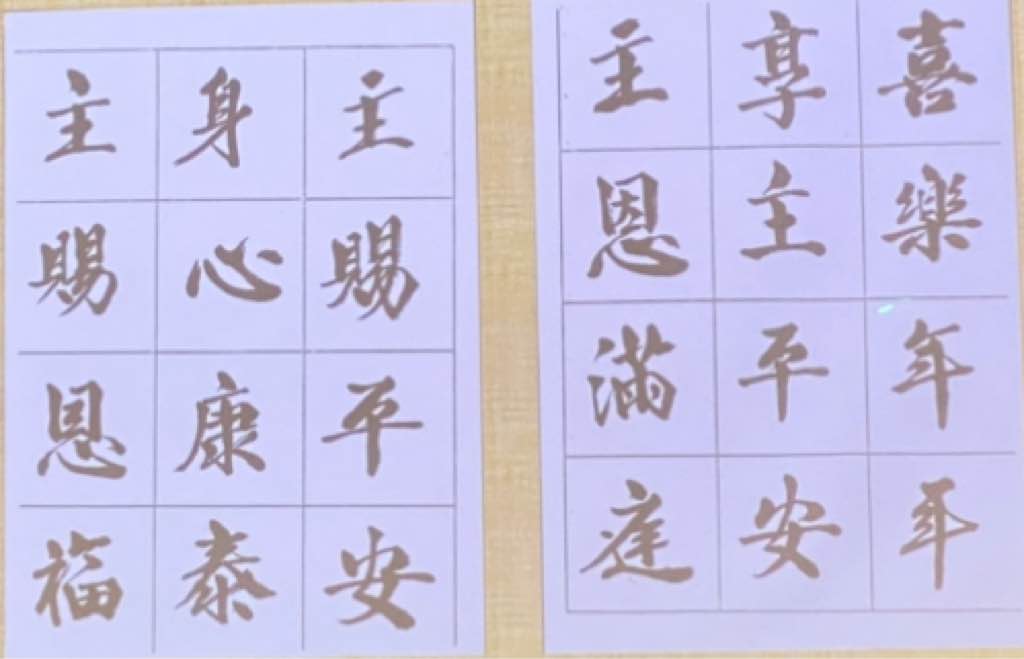 喜樂年年
享主平安
主恩滿庭
主賜平安
身心康泰
主賜恩福